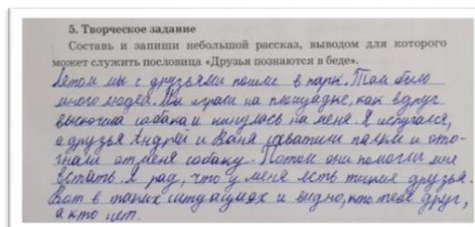 5. Творческое задание
Составь и запиши небольшой рассказ, выводом для которого
может служить пословица «Друзья познаются в беде».
Летом мы с друзьями пошли в парк. Там было
много людей. Мы играли на площадке, как вдруг
выскочила собака и кинулась на меня. Я испугался,
а друзья Андрей и Ваня схватили палки и ото-
гнали от меня собаку. Потом они помогли мне
встать. Я рад, что у меня есть такие друзья.
Вот в таких ситуациях и видно, кто тебе друг,
а кто нет.